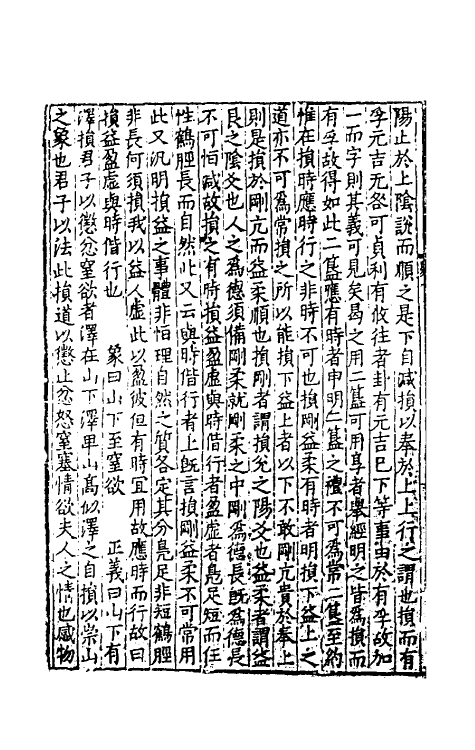 陽止於上陰說而順之是下自減損以奉於上上行之謂也損而有
孚元吉无咎可貞利有攸往者卦有元吉已下等事由於有孚故加
一而字則其義可見矣曷之用二簋可用享者舉經明之皆為損而
有孚故得如此二簋應有時者申明二簋之禮不可為常二簋至約
惟在損時應時行之非時不可也損剛益柔有時者明損下益上之
道亦不可為常損之所以能損下益上者以下不敢剛亢貴於奉上
則是損於剛亢而益柔順也損剛者謂損兊之陽爻也益柔者謂益
艮之陰爻也人之為德須備剛柔就剛柔之中剛為德長旣為德長
不可怕減故損之有時損益盈虛與時偕行者盈虛者鳧足短而任
性鶴脛長而自然此又云與時偕行者上旣言損剛益柔不可常用
此又汎明損益之事體非怕理自然之質各定其分鳧足非短鶴脛
非長何須損我以益人虛此以盈彼但有時宜用故應時而行故曰
損益盈虛與時偕行也 象曰山下至窒欲 正義曰山下有
澤損君子以懲忿窒欲者澤在山下澤卑山高似澤之自損以崇山
之象也君子以法此損道以懲止忿怒窒塞情欲夫人之情也感物